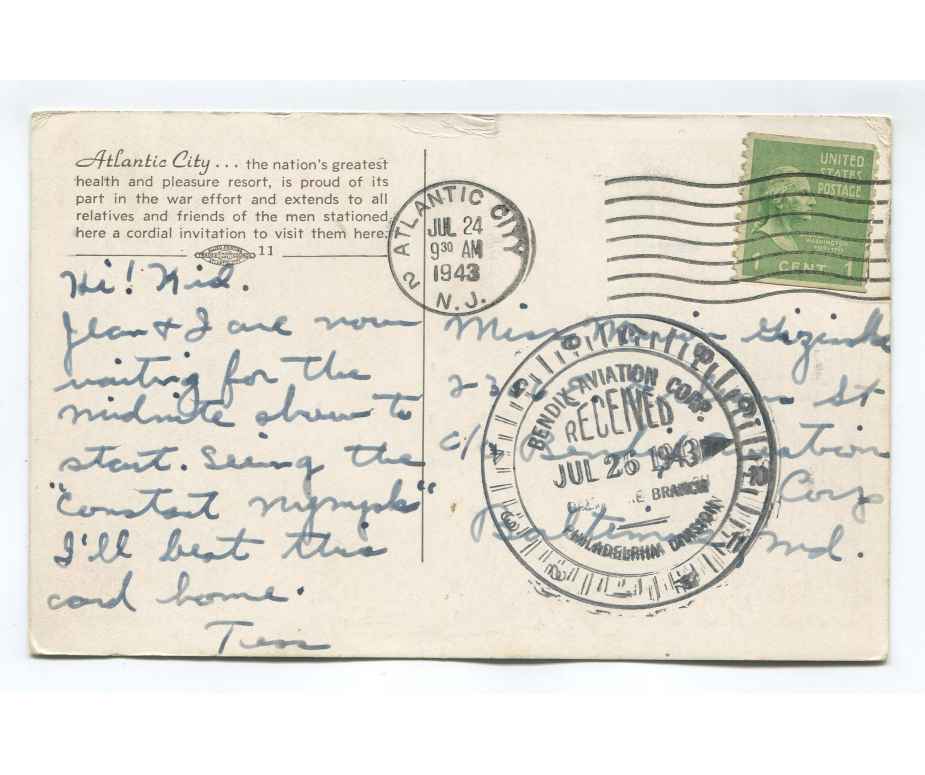 Atlantic City... the nation's greatest
health and pleasure resort, is proud of its
part in the war effort and extends to all
relatives and friends of the men stationed
here a cordial invitation to visit them here.
11
Hi! Kid.
Jean & I are now
waiting for the
midnite show to
start. Seeing the
"Constant Nymph"
I'll beat this
card home.
Tess
ATLANTIC CITY 2
JUL 24
9 30 AM
1943
N.J.
UNITED
STATES
POSTAGE
WASHINGTON
1 CENT 1
Miss
St
c/o Bendix Aviation
Corp
Baltimore, Md.
BENDIX AVIATION CORP.
RECEIVED
JUL 26 1943
BRANCH
PHILADELPHIA DIVISION